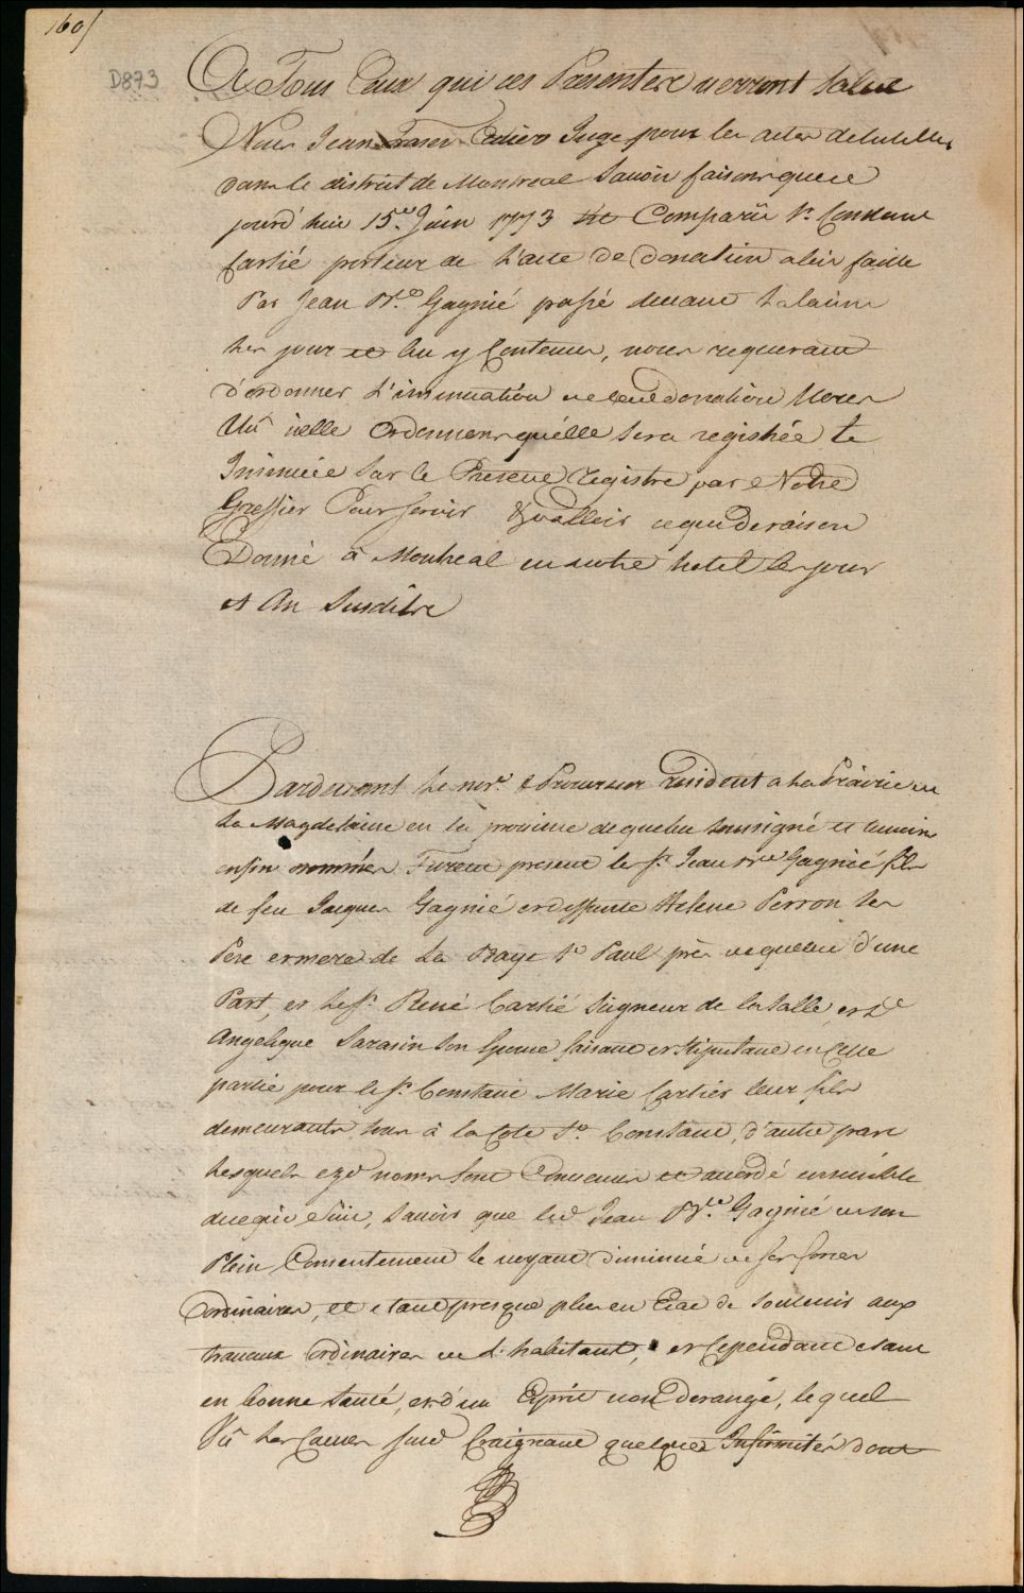 160/
D873
A Tous Ceux qui ces Presentes verront Salut
Nous Jean Fraser Ecuier Juge pour les actes detutelles
dans le district de Montreal Savoir faisons que ce
jourd'hui 15e. Juin 1773 est Comparüe Sr. Constant
Cartié porteur de L'acte de Donation a lui faitte
Par Jean Bte Gagnié passé devant
les jour et an y Contenus, nous requerant
d'ordonner L'insinuation de laditte donation Nous
Vû icelle Ordonnons qu'elle Sera registrée &
Insinuée Sur le Present Registre par Notre
Greffier Pour servir & valloir ce que de raison
Donné à Montreal en notre hotel les jour
et An Susdits
Pardevant Le nore. & Procureur Residant a La Prairie de
La Magdelaine en la province de quebec soussigné et temoins
enfin nommés Furent present le Sr. Jean Bte Gagnié fils
de feu Jacques Gagnié et deffunte Helene Perron Ses
Pere et mere de La Baye St Paul près de quebec d'une
Part, et Le Sr. René Cartié Seigneur de la Salle, et De
Angelique Sarasin Son Epouse faisant et Stipulant en Cette
partie pour le Sr. Constant Marie Cartier leur fils
demeurants tous à la Cote St. Constant, d'autre part
Lesquels ezd noms Sont Convenus et accordé ensemble
de ce qui Suit, Savoir que led Jean Bte. Gagnié de son
Plein Consentement Se voyant diminué de ses forces
Ordinaires, et etant presque plus en Etat de Soutenir aux
travaux Ordinaires de L'habitant, et Cependant etant
en bonne Santé, et d'un Esprit non Derangé, lequel
Vû Les Causes susd Craignant quelques Infirmités dont